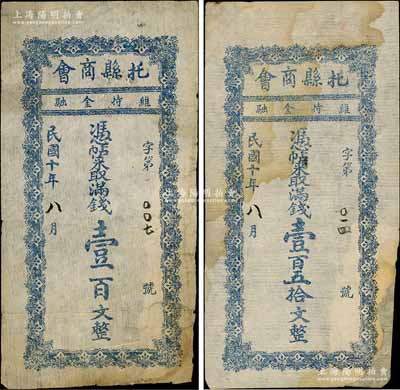 上海陽明拍賣
會商縣托
融金持維
字第 〇〇七 號
憑帖來取滿錢壹百文整
民國十年八月
會商縣托
融金持維
字第 〇一四 號
憑帖來取滿錢壹百五拾文整
民國十年八月